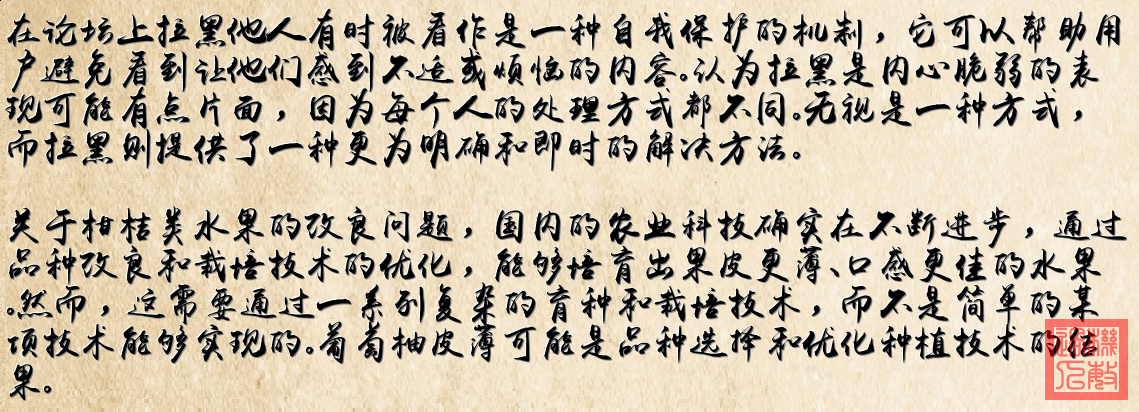 在论坛上拉黑他人有时被看作是一种自我保护的机制，它可以帮助用
户避免看到让他们感到不适或烦恼的内容。认为拉黑是内心脆弱的表
现可能有点片面，因为每个人的处理方式都不同。无视是一种方式，
而拉黑则提供了一种更为明确和即时的解决方法。
关于柑桔类水果的改良问题，国内的农业科技确实在不断进步，通过
品种改良和栽培技术的优化，能够培育出果皮更薄、口感更佳的水果
。然而，这需要通过一系列复杂的育种和栽培技术，而不是简单的某
项技术能够实现的。葡萄柚皮薄可能是品种选择和优化种植技术的结
果。